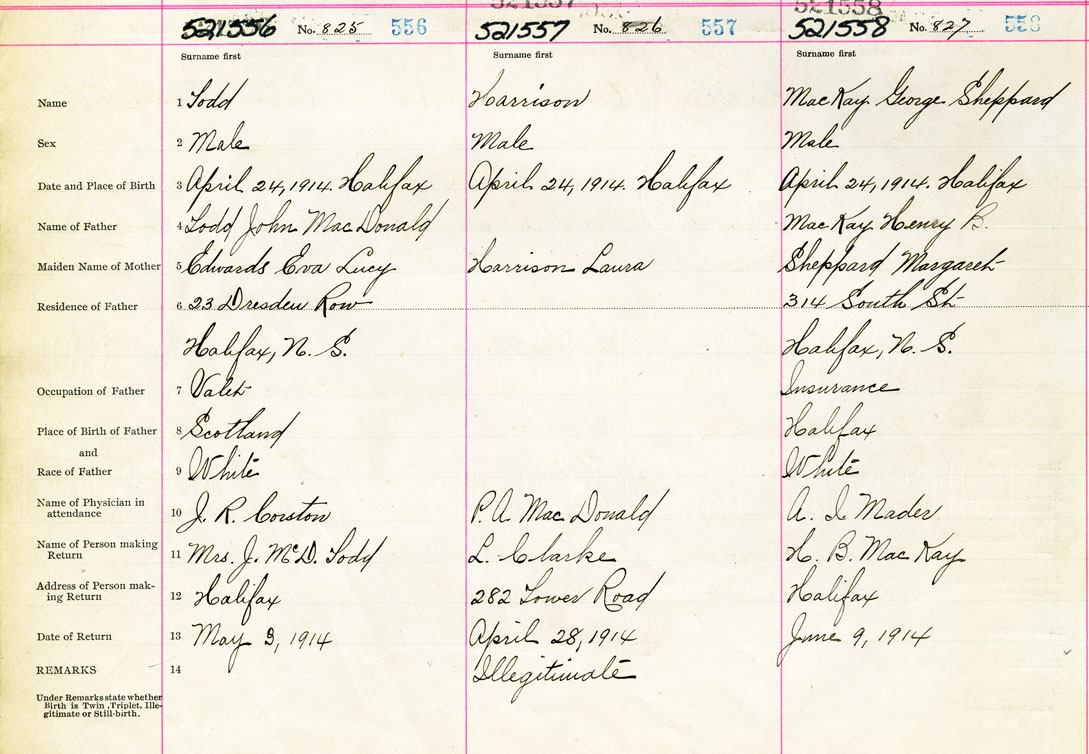 521557 521558
521556 No. 825 556 521557 No. 826 557 521558 No. 827 558
Surname first Surname first Surname first
Name 1 Todd Harrison MacKay George Sheppard
Sex 2 Male Male Male
Date and Place of Birth 3 April 24, 1914. Halifax April 24, 1914. Halifax April 24, 1914. Halifax
Name of Father 4 Todd John MacDonald MacKay Henry B.
Maiden Name of Mother 5 Edwards Eva Lucy Harrison Laura Sheppard Margaret
Residence of Father 6 23 Dresden Row 314 South St
Halifax, N. S. Halifax, N. S.
Occupation of Father 7 Valet Insurance
Place of Birth of Father 8 Scotland Halifax
and
Race of Father 9 White White
Name of Physician in
attendance 10 J. R. Corston P. A Mac Donald A. I Mader
Name of Person making
Return 11 Mrs. J. McD. Todd L. Clarke H. B. Mac Kay
Address of Person mak-
ing Return 12 Halifax 282 Tower Road Halifax
Date of Return 13 May 3, 1914 April 28, 1914 June 9, 1914
REMARKS 14 Illegitimate
Under Remarks state whether
Birth is Twin, Triplet, Ille-
gitimate or Still-birth.